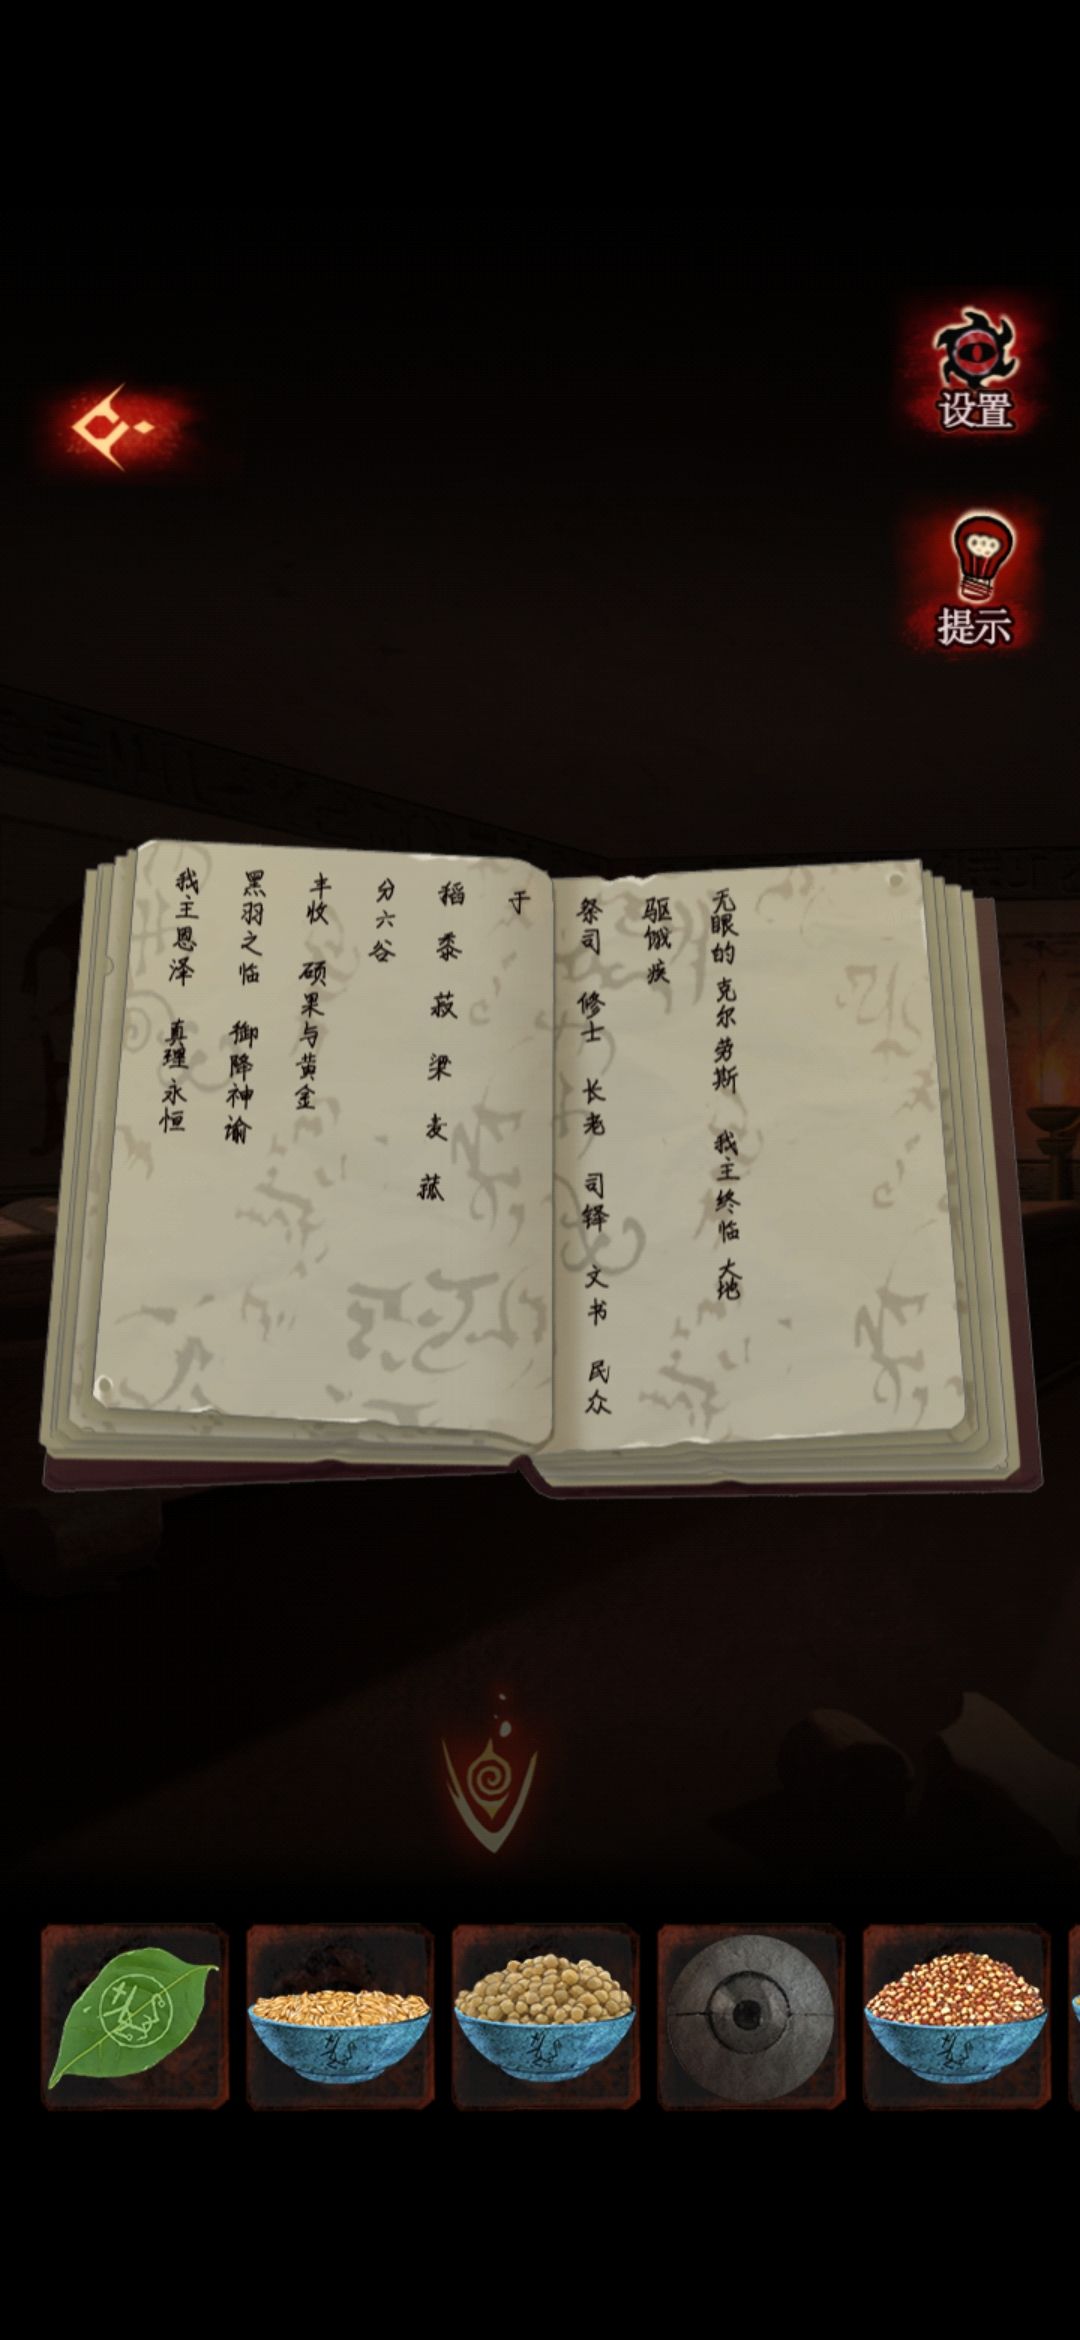 设置
提示
无眼的 克尔劳斯 我主终临 大地
驱饿疾
祭司 修士 长老 司铎 文书 民众
于
稻 黍 菽 粱 麦 菰
分六谷
丰收 硕果与黄金
黑羽之临 御降神谕
我主恩泽 真理永恒